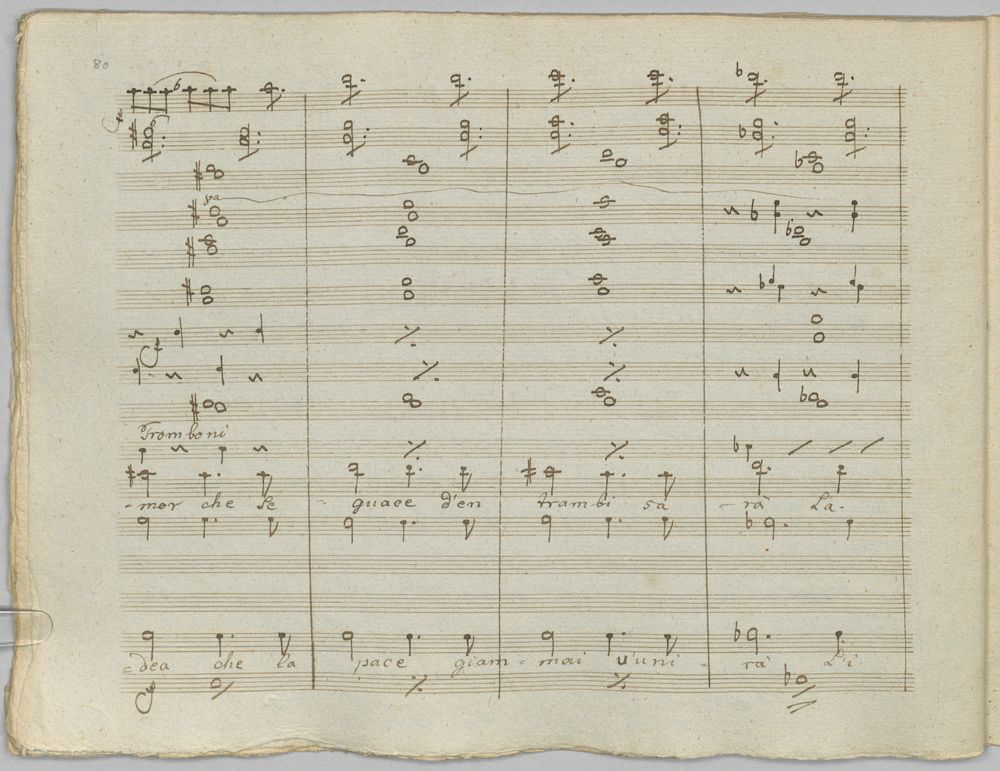 80
8a
Tromboni
-mor che se - guace d'en trambi sa - rà La-
=dea che la pace giam - mai v'uni - rà Li